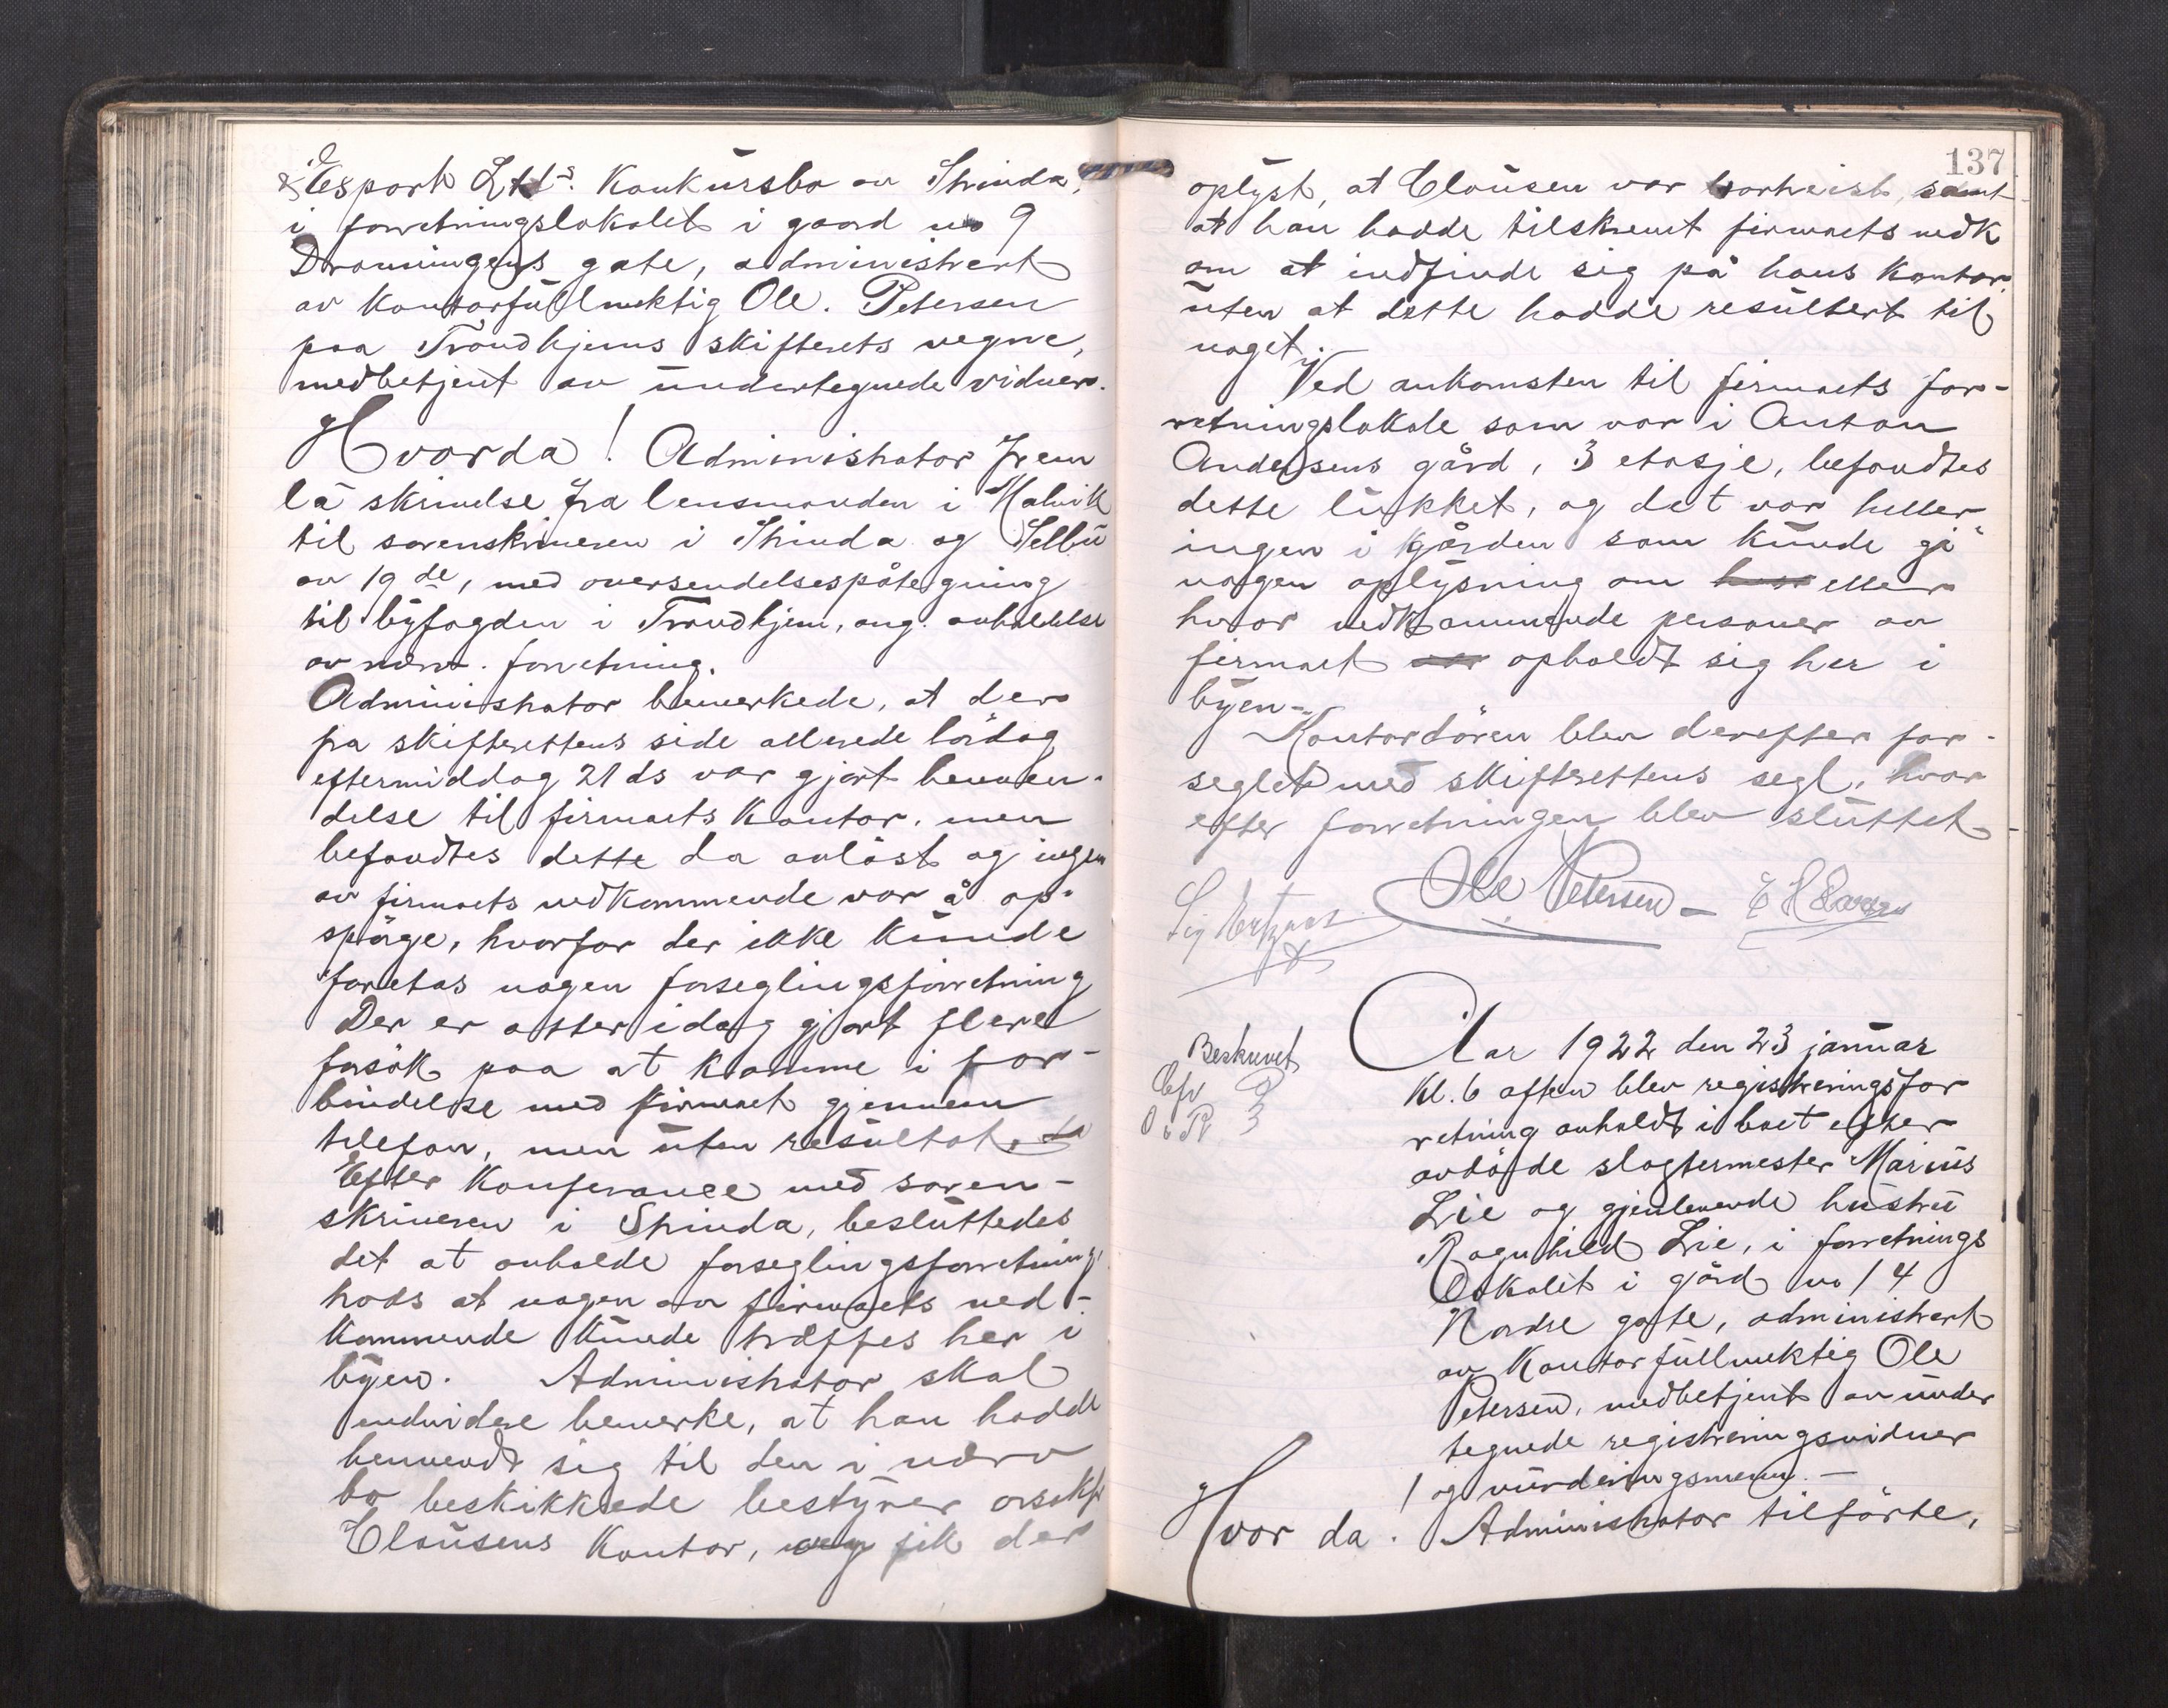 & Export Ltd's Konkursbo av Strinda,
i forretningslokalet i gaard no 9
Dronningens gate, administrert
av kontorfuldmektig Ole. Petersen
paa Trondhjems skifterets vegne,
medbetjent av undertegnede vidner.
Hvorda! Administrator frem
la skrivelse fra lensmanden i Malvik
til sorenskriveren i Strinda og Selbu
av 19de, med oversendelsespåtegning
til byfogden i Trondhjem, ang. avholdelse
av nærv. forretning.
Administrator bemerkede, at der
fra skifterettens side allerede lördag
eftermiddag 21 ds var gjort henven-
delse til firmaets kontor, men
befandtes dette da avlåst og ingen
av firmaets vedkommende var å op-
spörge, hvorfor der ikke kunde
foretas nogen forseglingsforretning
Der er atter idag gjort flere
forsök paa at komme i for-
bindelse med firmaet gjennem
telefon, men uten resultat.
Efter Konferance med soren-
skriveren i Strinda, besluttedes
det at avholde forseglingsforretning
hvos at nogen av firmaets ved-
kommende kunde træffes her i
byen. Administrator skal
endvidere bemerke, at han hadde
henvendt sig til den i nærv
bo beskikkede bestyrer orsakf
Clausens Kontor, og fik der
137
oplyst, at Clausen var bortreist, samt
at han hadde tilskrevet firmaets vedk
om at indfinde sig på hans kontor,
uten at dette hadde resultert til
noget.
Ved ankomsten til firmaets for-
retningslokale som var i Anton
Andersens gård, 3 etasje, befandtes
dette lukket, og det var heller
ingen i gården som kunde gi
nogen oplysning om hvor eller
hvor vedkommende personer av
firmaet var opholdt sig her i
byen-
Kontordören blev derefter for-
seglet med skifterettens segl, hvor
efter forretningen blev sluttet
Ole Petersen - E H Larsen
Aar 1922 den 23 januar
Beskrevet
kl. 6 aften blev registreringsfor
retning avholdt i boet efter
avdöde slagtermester Marius
Lie og gjenlevende hustru
Ragnhild Lie, i forretnings
lokalet i gård no 14
Nordre gate, administrert
av Kontorfullmektig Ole
Petersen, medbetjent av under
tegnede registreringsvidner
og vurderingsmenn. -
Hvor da. Administrator tilförte,